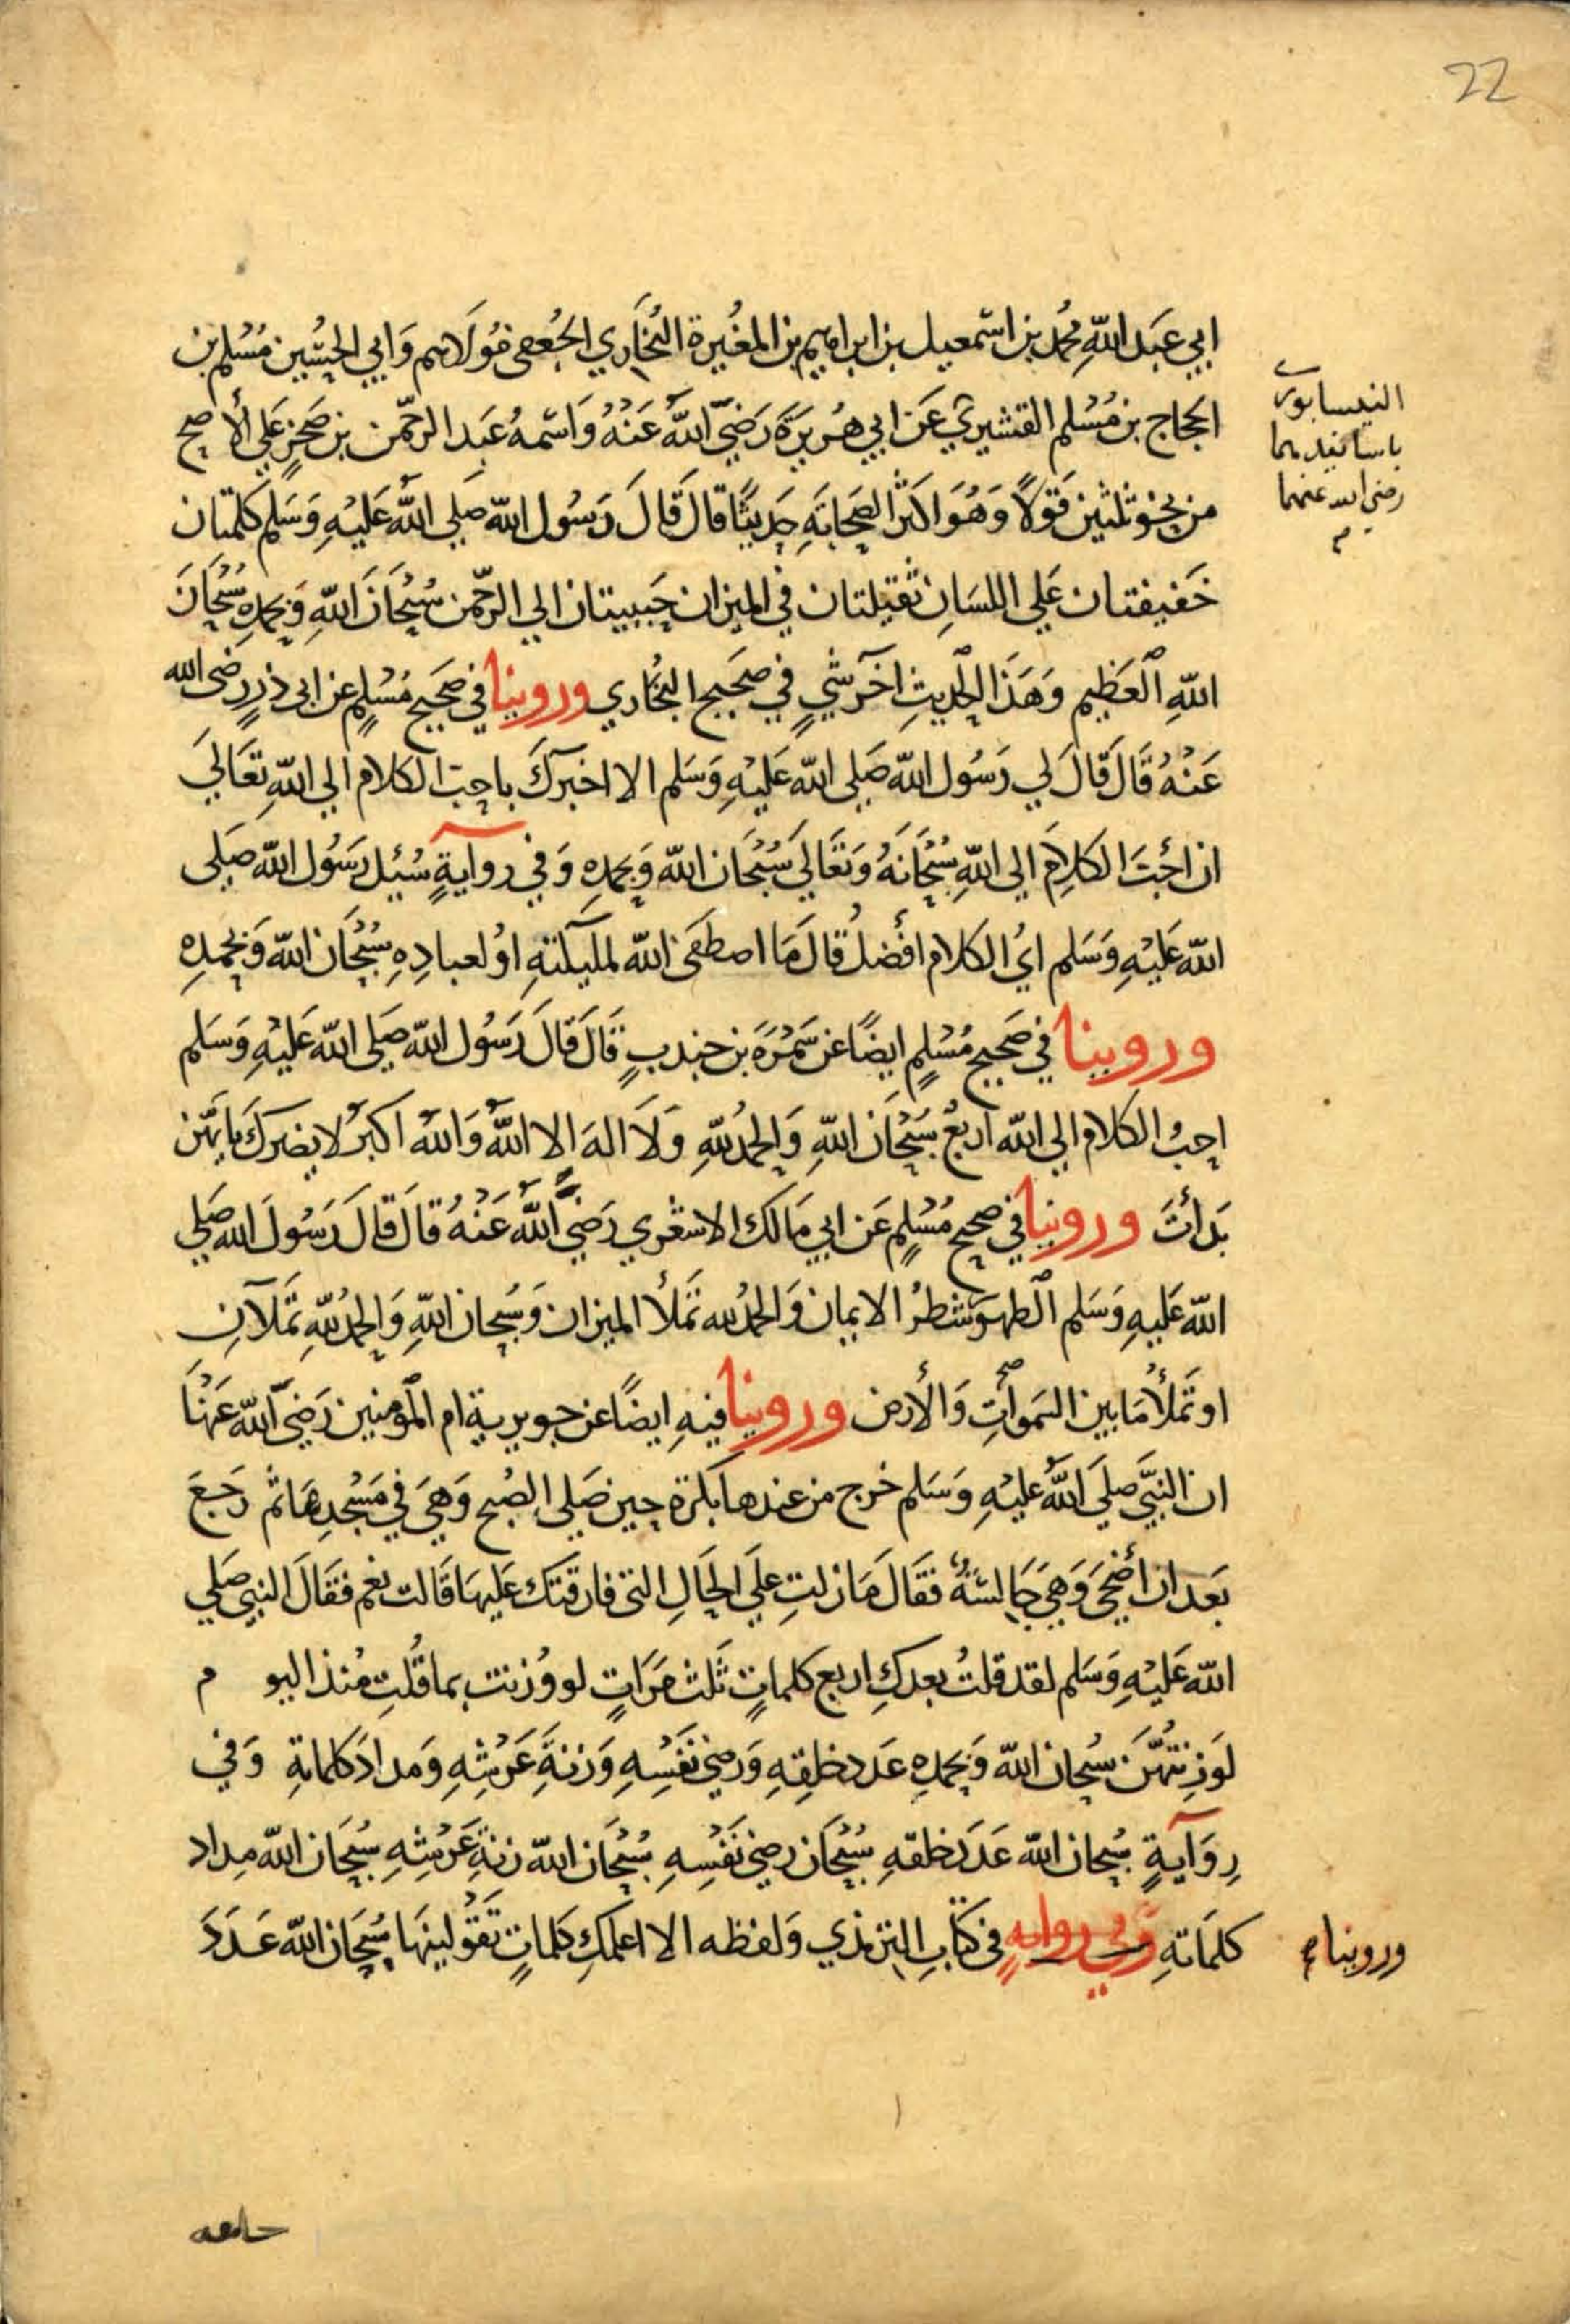 22
ابي عَبدالله محُمد بن اسمعيل بن ابراهيم بن المغُيرة البُخَاري الجُعفى مَوُلَاهم وَابي الحسُين مُسُلم بن
الحجاج بن مُسُلم القشيري عَن ابي هُريرَةَ رَضيَ اللهُ عَنْهُ وَاسمهُ عَبد الرحمن بن صَخرٍ عَلي الأصح
من نحو ثلثين قَولاً وَهُوَ اكثر الصحَابَةِ حَديثًا قال قَالَ رَسُول الله صلي اللهُ عَلَيْهِ وَسَلم كلمتان
خَفيفتان عَلي اللسَانِ ثقيلتان في الميزان حَبيبتان الي الرحمن سُبْحَانَ اللهِ وَبحمدِهِ سُبْحَانَ
اللهِ العَظِيم وَهَذَا الحديثِ اخر شيٍ في صحَيح البخُاري وروينا في صحَيح مُسْلمٍ عن ابى ذرٍ رضى الله
عَنْهُ قَالَ قَالَ لي رَسُول الله صَلي الله عَليْهِ وَسَلم الا اخبرك باحب الكلام الي اللهِ تعَالَي
ان احَبَ الكلِامَ الي اللهِ سُبْحَانَهُ وَتَعَالَي سُبْحَان الله وَبحمدِهِ وَفي روايةٍ سُئِل رَسُول الله صَلي
الله عَليْهِ وَسَلم ايُ الكلام افضلُ قَالَ مَا اصطَفى الله لمليكته اوُ لعبادِهِ سُبْحَان الله وَبحمدِهِ
وروينا في صَحيح مُسْلمٍ ايضًا عن سَمرَة بن جندبٍ قَالَ قَالَ رَسُول الله صَلى الله عَليْهِ وَسَلم
احِبُ الكلام الي الله اربعُ سُبْحَان اللهِ وَالحمدُ للهِ وَلَا الهَ الا اللهُ وَالله اكبرُ لا يضرك بايهن
بَدأتَ وروينا في صحيح مُسْلمٍ عَن ابي مَالك الاشعري رَضيَ اللهُ عَنْهُ قَالَ قَالَ رَسُولَ الله صلي
الله عَليهِ وَسَلم الطهور شطرُ الايمان وَالحمدُ لله تملأ الميزان وَسُبحان اللهِ وَالحمدُ للهِ تملآنِ
او تملأ مَا بين السَموات وَالأرض وروينا فيهِ ايضًا عن جويرية ام المؤمنين رَضيَ الله عَنْهَا
ان النبيَ صلَي اللهُ عليْهِ وَسَلم خرج من عندها بكرة حين صَلي الصُبح وَهيَ في مَسْجدِهَا ثم رَجَعَ
بَعد ان أضحَى وَهيَ جَالسَةٌ فقَالَ مَا زلتِ علَي الحَالِ التى فارقتك عَليها قَالت نعم فقَالَ النبي صلي
الله عَليْهِ وَسَلم لقد قلتُ بعدكِ اربع كلماتٍ ثلث مَرَاتٍ لو وُزنت بما قُلتِ مُنذ اليوم
لَوَزنتْهُنَ سُبحان الله وَبحمدِهِ عَدد خلقِهِ وَرضيَ نفَسْهِ وَزنةَ عَرْشِهِ وَمدادَ كلماتهِ وَفي
رِوَايةٍ سُبحان الله عَدَدَ خلقهِ سُبْحَان رضي نفَسْهِ سُبْحَان الله زنةِ عَرْشِهِ سُبْحَان الله مِداد
كلمَاتهِ وَفي روايهٍ في كتَابِ الترمذي وَلفظه الا اعلمكِ كَلماتٍ تَقوُلينَها سُبْحَان الله عَدَدَ
النيسابورى
باسانيدهما
رضى الله عنهما
م
وروينا
خلقه